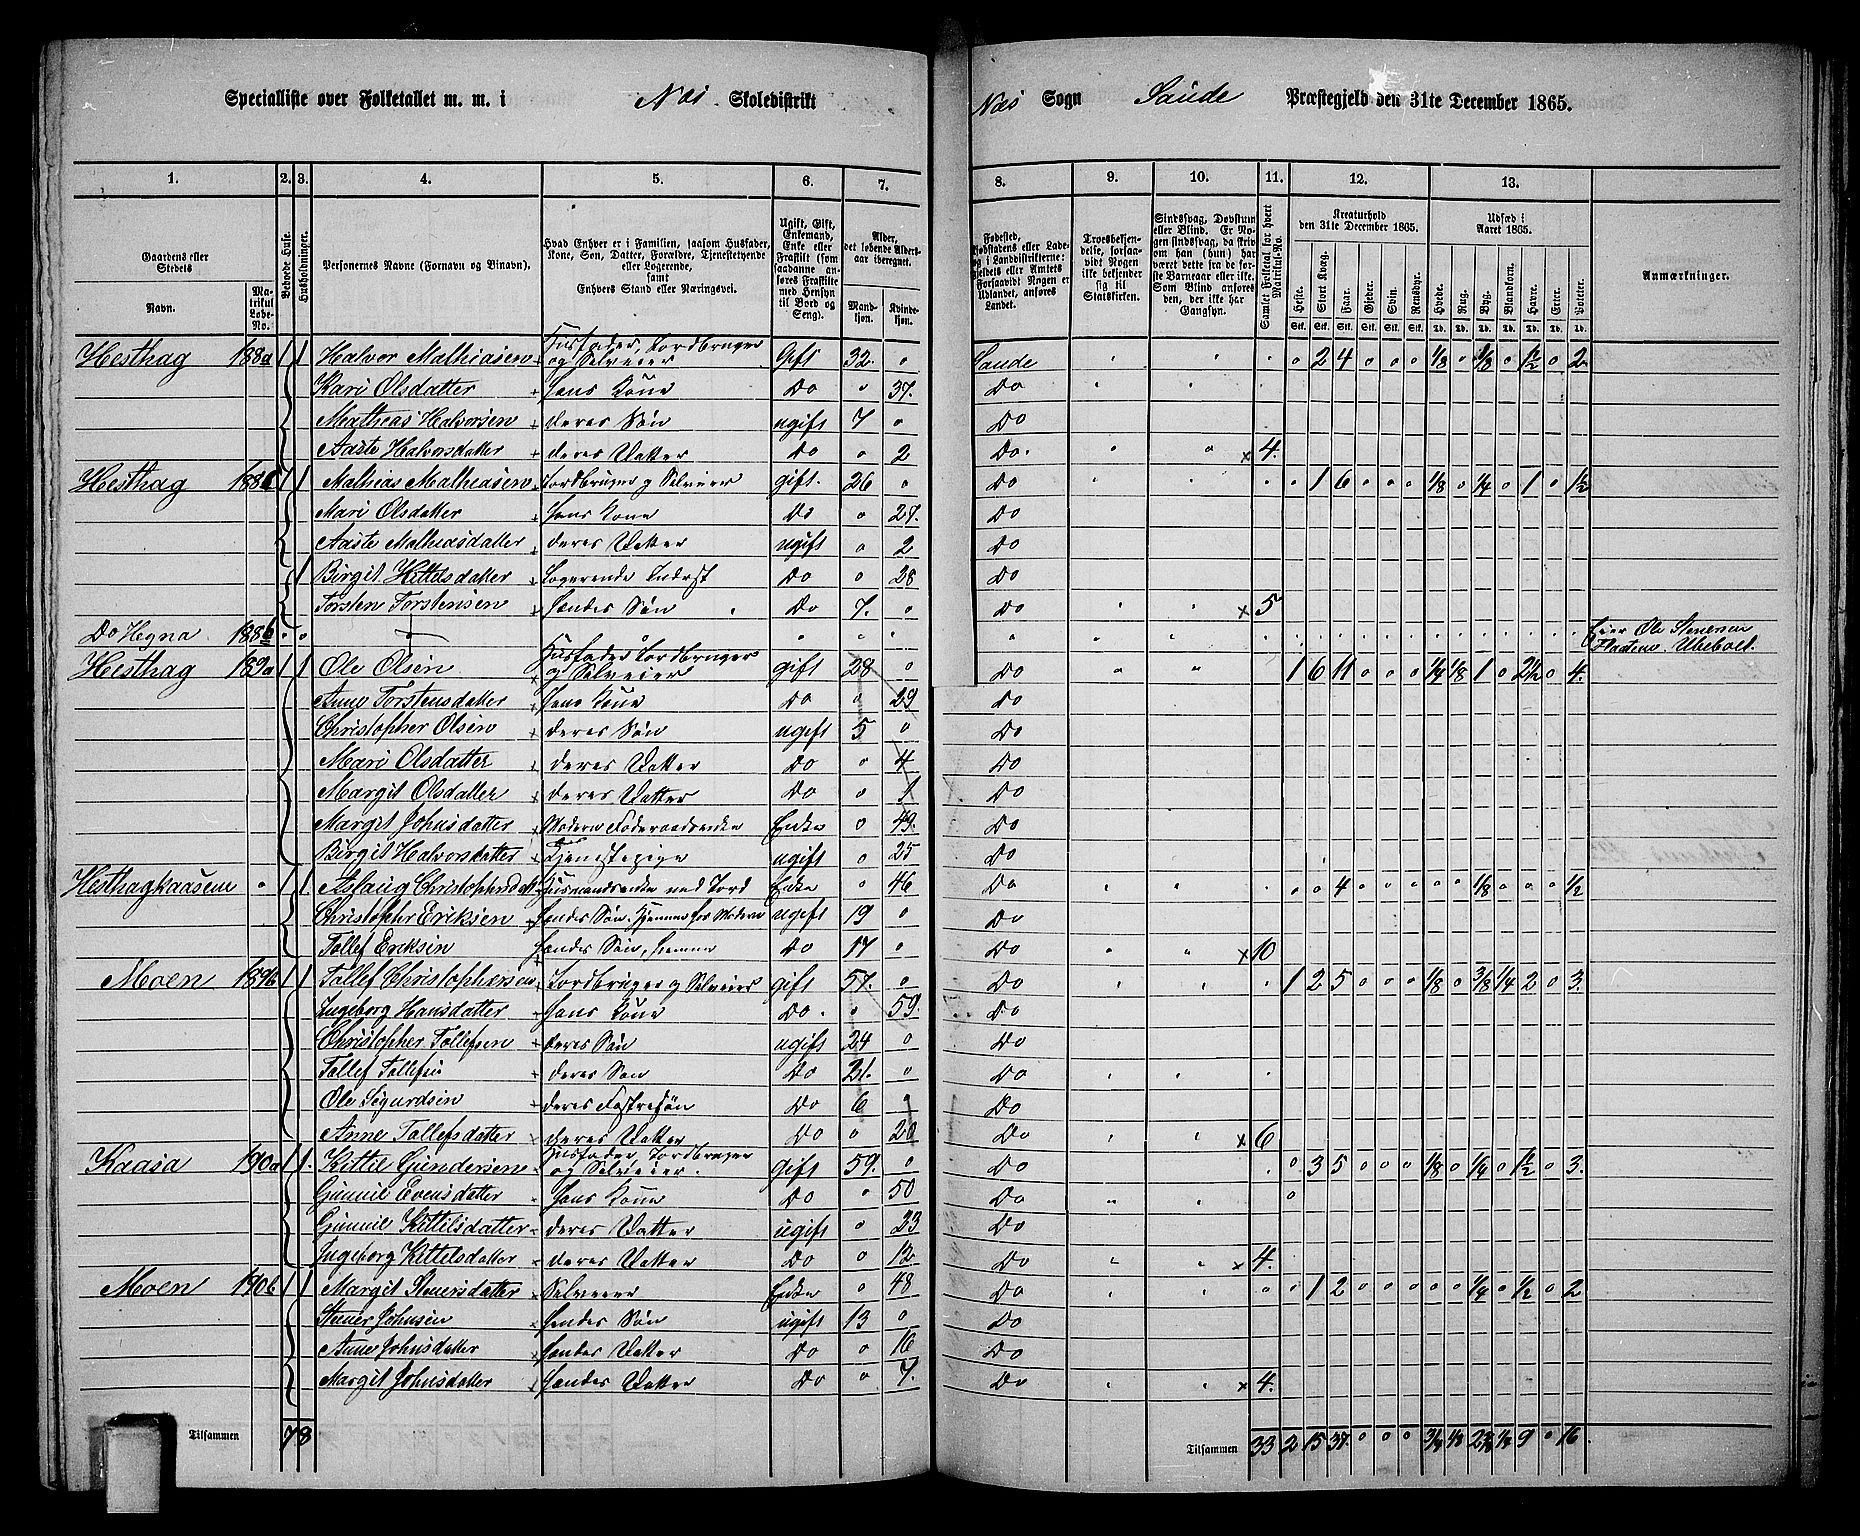 Specialliste over Folketallet m. m. i Næs Skoledistrikt Næs Sogn Saude Præstegjeld den 31te December 1865.
1. 2. 3. 4. 5. 6. 7. 8. 9. 10. 11. 12. 13.
Gaardens eller Stedets
Navn.
Matrikul Løbe-No.
Beboede Huse.
Husholdninger.
Personernes Navne (Fornavn og Binavn).
Hvad Enhver er i Familien, saasom Husfader, Kone, Søn, Datter, Forældre, Tjenestetyende eller Logerende, samt Enhvers Stand eller Næringsvei.
Ugift, Gift, Enkemand, Enke eller Fraskilt (som saadanne anføres Fraskilte med Hensyn til Bord og Seng).
Alder, det løbende Aldersaar iberegnet.
Mandkjøn. Kvindekjøn.
Fødested,
Troesbekjendelse, forsaavidt Nogen ikke bekjender sig til Statskirken.
Samlet Folketal for hvert Matrikul-No.
Kreaturhold den 31te December 1865.
Heste. Stort Kvæg. Faar. Gjeder. Svin. Rensdyr.
Udsæd i Aaret 1865.
Hvede. Rug. Byg. Blandkorn. Havre. Erter. Poteter.
Anmærkninger.
Hesthag 188a 1 1 Halvor Mathiasen Husfader, Jordbruger og Selveier Gift 32. " Saude " " . " 2 4 " " " 1/8 " 3/8 " 1½ " 2
Kari Olsdatter hans Kone Do " 37. Do
Mathias Halvorsen deres Søn ugift 7 " Do
Aaste Halvorsdatter deres Datter Do " 2 Do. " " x 4.
Hesthag 1 1 Mathias Mathiasen Jordbruger og Selveier gift. 26 " Do " " . " 1 6 " " " 1/8 " 1/4 " 1 " ½
Mari Olsdatter hans Kone Do " 27. Do
Aaste Mathiasdatter deres Datter ugift " 2 Do
1 Birgit Kittelsdatter Logerende Inderst Do " 28 Do
Torsten Torstensen hendes Søn Do 7. " Do " " x 5
Do Hegna 188b " " " Eier Ole Stenersen
Hesthag 189a 1 1 Ole Olsen Husfader Jordbruger og Selveier gift 28 " Do " " 1 6 11 " " " 1/4 1/8 1 " 2½ " 4.
Anne Torstensdatter hans Kone Do " 29 Do
Christopher Olsen deres Søn ugift 5 " Do
Mari Olsdatter deres Datter Do " 4 Do
Margit Olsdatter deres Datter Do " 1 Do
Margit Johnsdatter Moderen Føderaadsenke Enke " 49. Do
Birgit Halvorsdatter Tjenestepige ugift " 25 Do
Hesthagkaasene " 1 1 Aslaug Christophersd Husmandsenke med Jord Enke " 46 Do " " . " " 4 " " " " " 1/8 " " " ½
Christopher Eriksen hendes Søn. Hjemme for Moderen ugift 19 " Do
Tollef Eriksen hendes Søn, hjemme Do 17 " Do " " x 10
Moen 189b 1 1 Tollef Christophersen Jordbruger og Selveier gift 57. " Do " " . 1 2 5 " " " 1/8 " 3/8 1/4 2 " 3.
Ingeborg Hansdatter hans Kone Do. " 59. Do
Christopher Tollefsen deres Søn ugift 24 " Do
Tollef Tollefsen deres Søn Do 21. " Do
Ole Sigurdsen deres Fostresøn Do 6 " Do
Anne Tollefsdatter deres Datter Do " 20 Do " " x 6
Kaasa 190a 1 1 Kittil Gundersen Husfader, Jordbruger og Selveier. gift 59. " Do . " 3 5 " " " 1/8 " 1/4 " 1½ " 3.
Gunnil Evensdatter hans Kone Do " 50 Do
Gunnil Kittilsdatter deres Datter ugift " 23 Do
Ingeborg Kittelsdatter deres Datter Do " 12 Do " " x 4.
Moen 190b 1 1 Margit Stenersdatter Selveier Enke " 48 Do " " " " 1 2 " " " " " 1/4 " ½ " 2
Stener Johnsen hendes Søn ugift 13 " Do
Anne Johnsdatter hendes Datter Do " 16 Do
Margit Johnsdatter hendes Datter Do " 7. Do " " x 4.
Tilsammen 7 8 Tilsammen 33 2 15 37. " " " 9 " 16